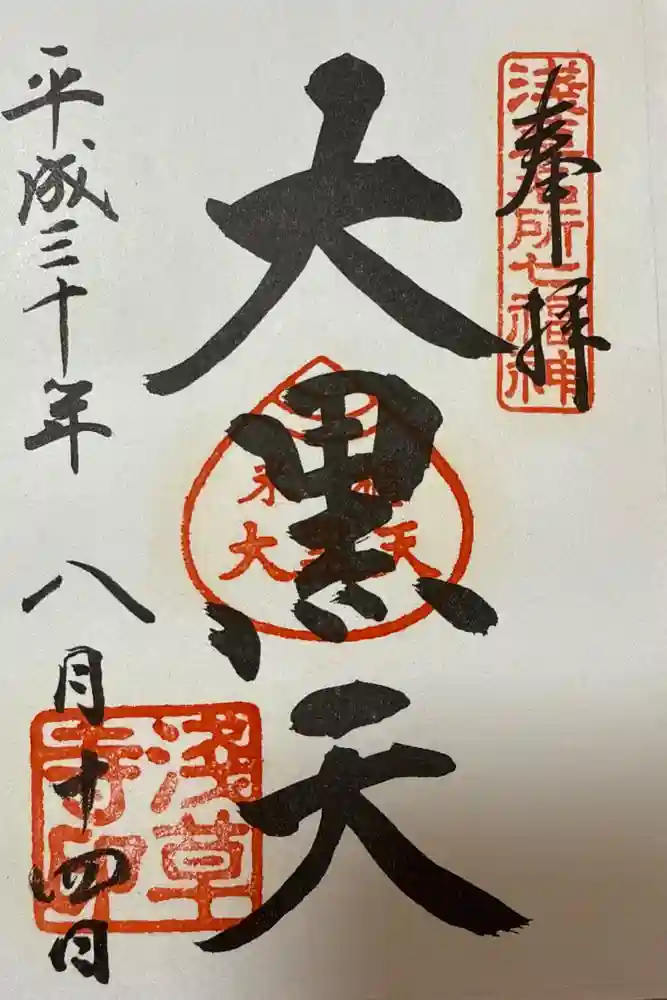 奉拝
淺草名所七福神
大黒天
平成三十年 八月十四日
淺草
寺印